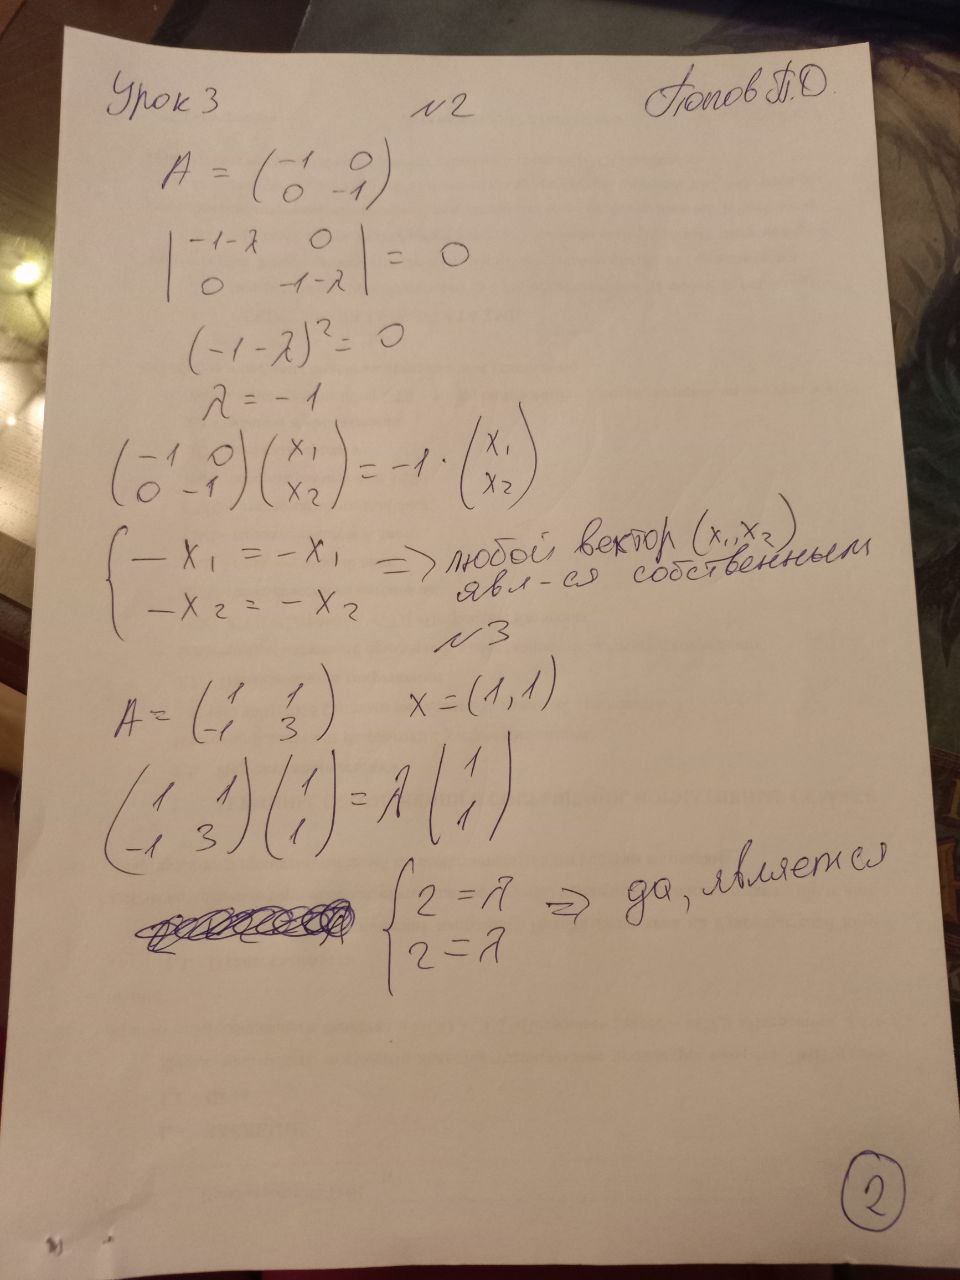 Урок 3 №2 Попов П.О.
A = (-1 0
0 -1)
|-1-λ 0
0 -1-λ| = 0
(-1-λ)² = 0
λ = -1
(-1 0
0 -1)(x₁
x₂) = -1·(x₁
x₂)
{-x₁ = -x₁
-x₂ = -x₂ => любой вектор (x₁, x₂)
явл-ся собственным
№3
A = (1 1
-1 3) x = (1, 1)
(1 1
-1 3)(1
1) = λ(1
1)
{2 = λ
2 = λ => да, является
2